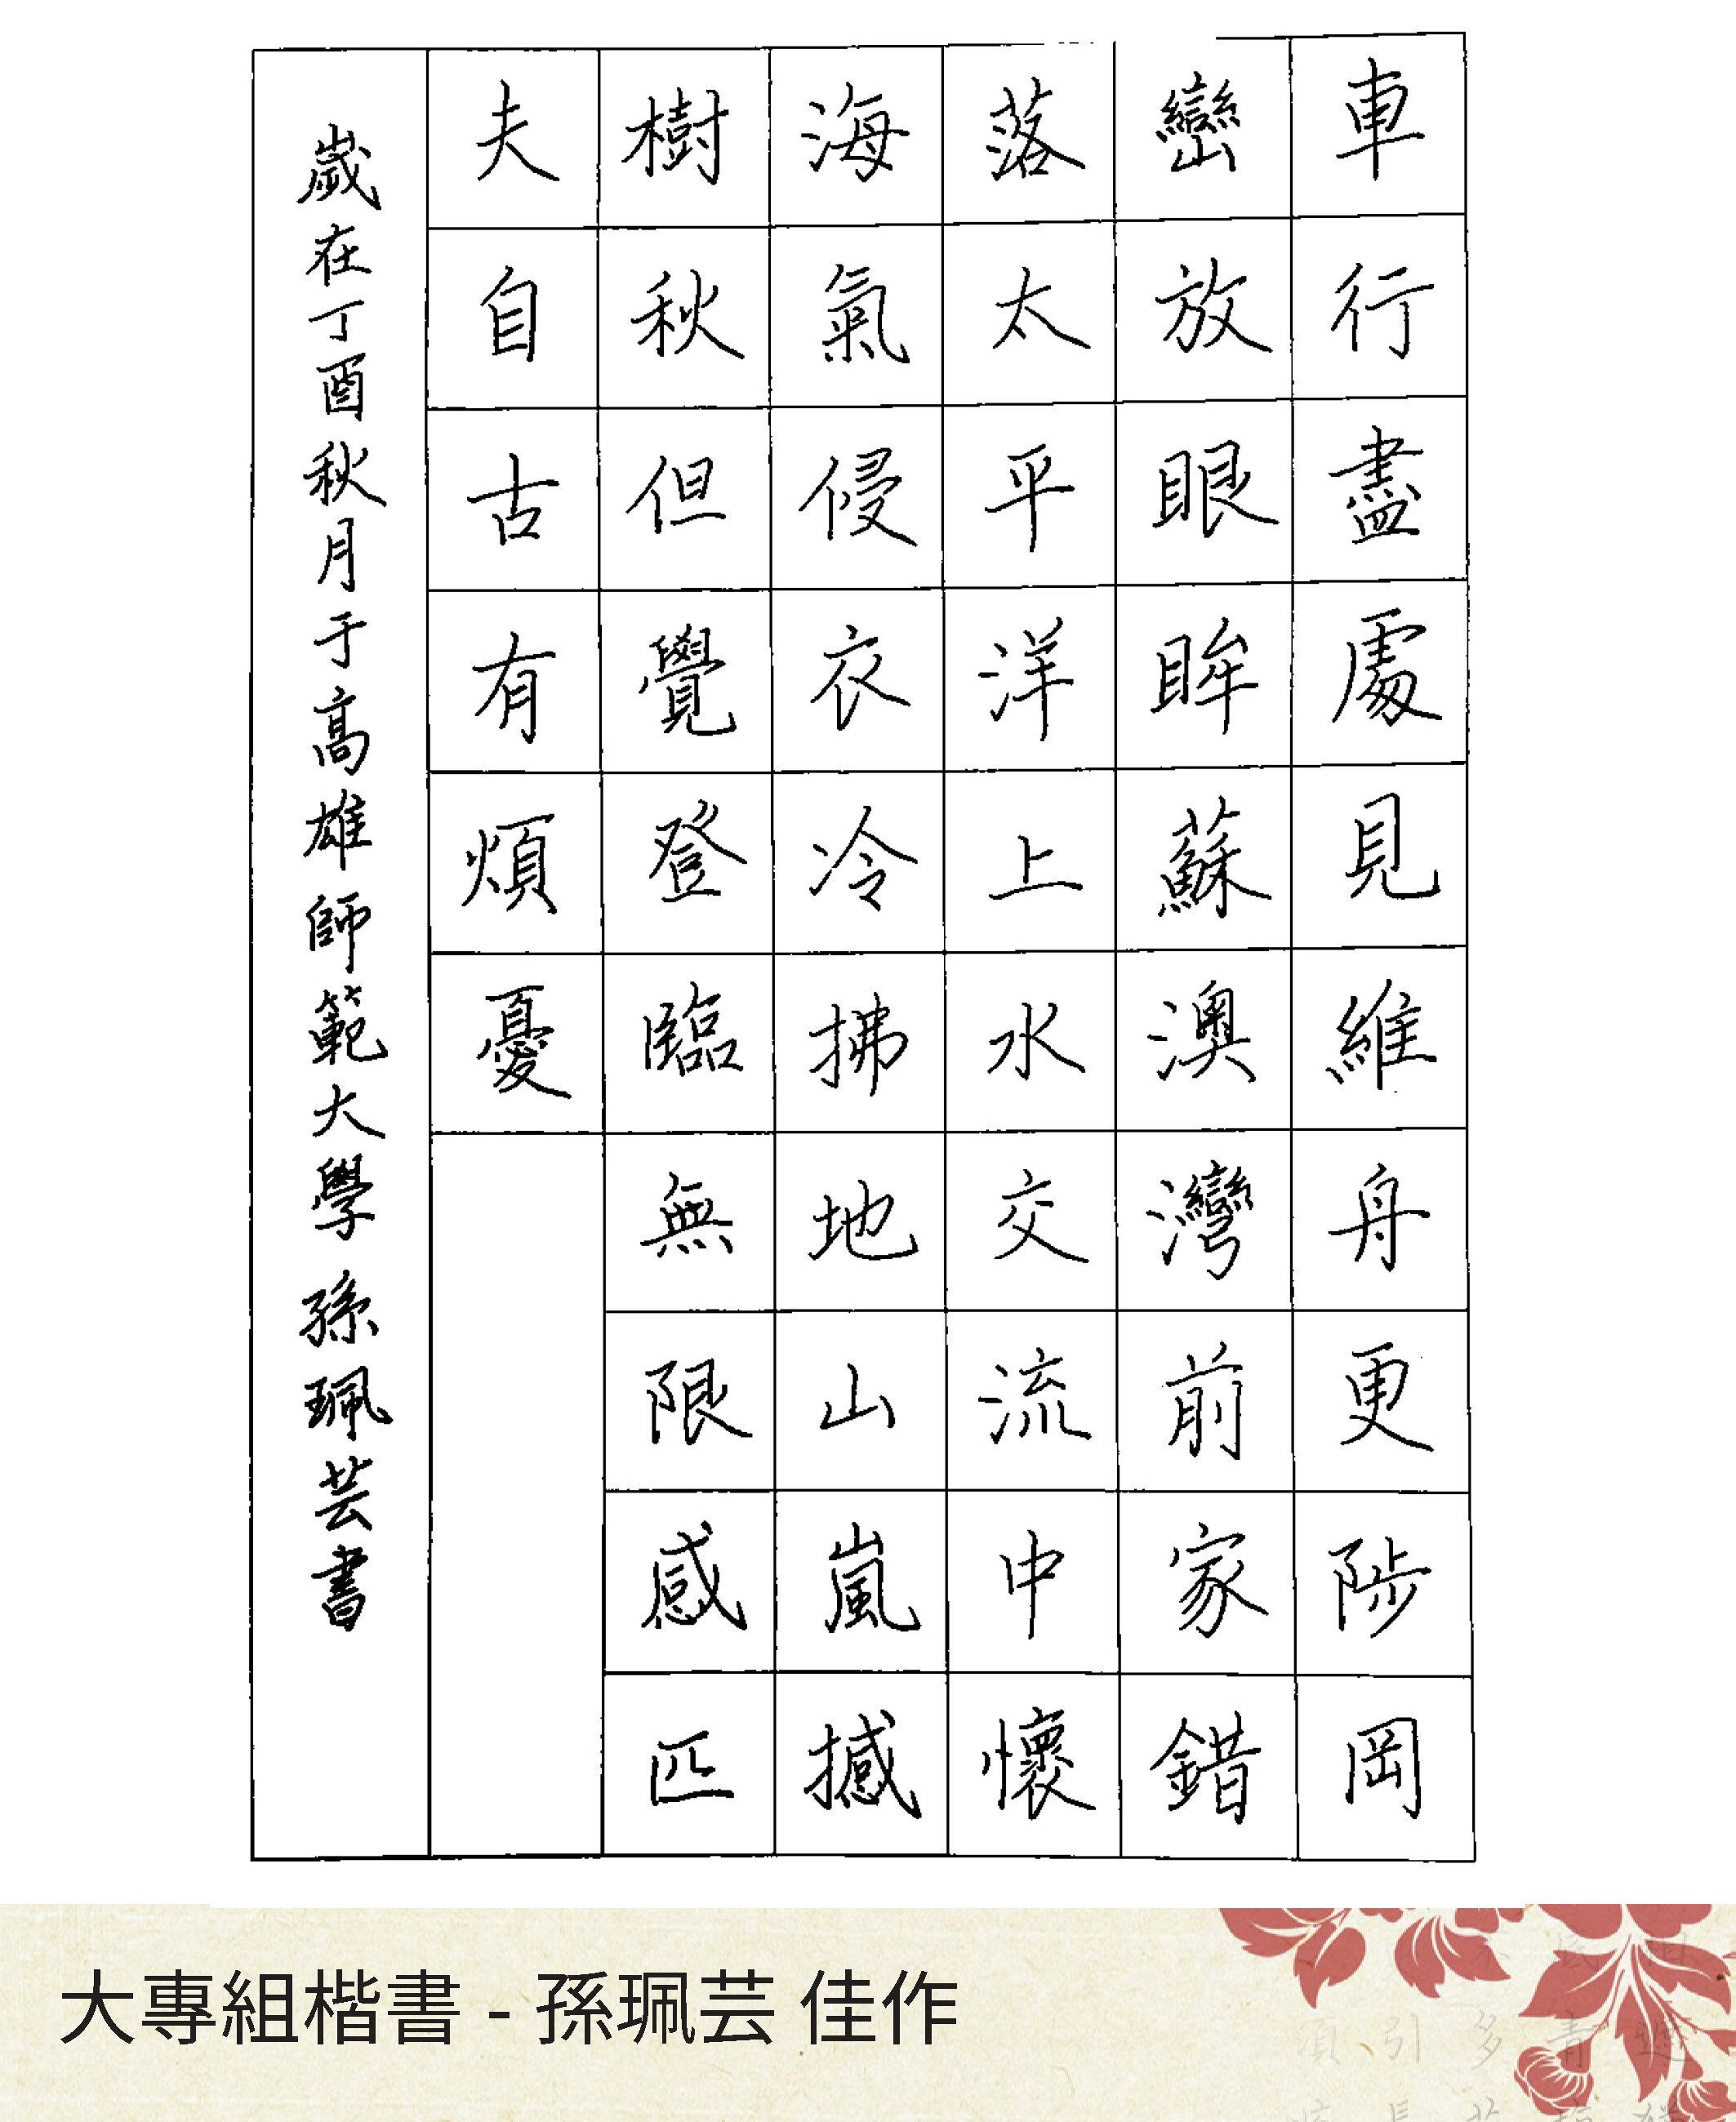 車行盡處見維舟更陟岡
巒放眼眸蘇澳灣前家錯
落太平洋上水交流中懷
海氣侵衣冷拂地山嵐撼
樹秋但覺登臨無限感匹
夫自古有煩憂
歲在丁酉秋月于高雄師範大學孫珮芸書
大專組楷書 - 孫珮芸 佳作